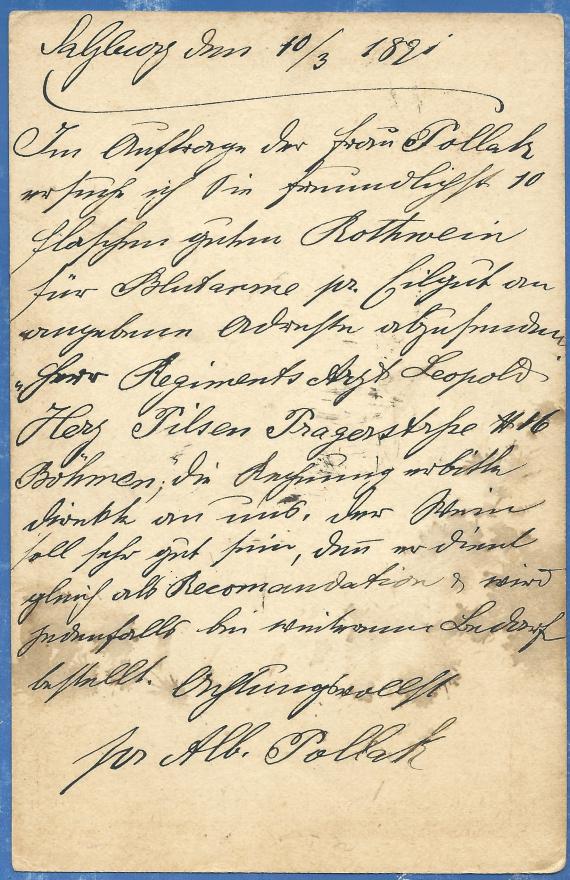 Salzburg den 10/3 1891
Im Auftrage der Frau Pollak
ersuche ich Sie freundlichst 10
Flaschen guten Rothwein
für Blutarme pr. Eilgut an
angebene Adresse abzusenden
"Herr Regiments Arzt Leopold
Herz Pilsen Pragerstrße # 16
Böhmen," die Rechnung erbitte
direkte an uns. der Wein
soll sehr gut sein, denn er dient
gleich als Recomandation & wird
jedenfalls bei weiterem Bedarf
bestellt. Achtungsvollst
pr Alb. Pollak